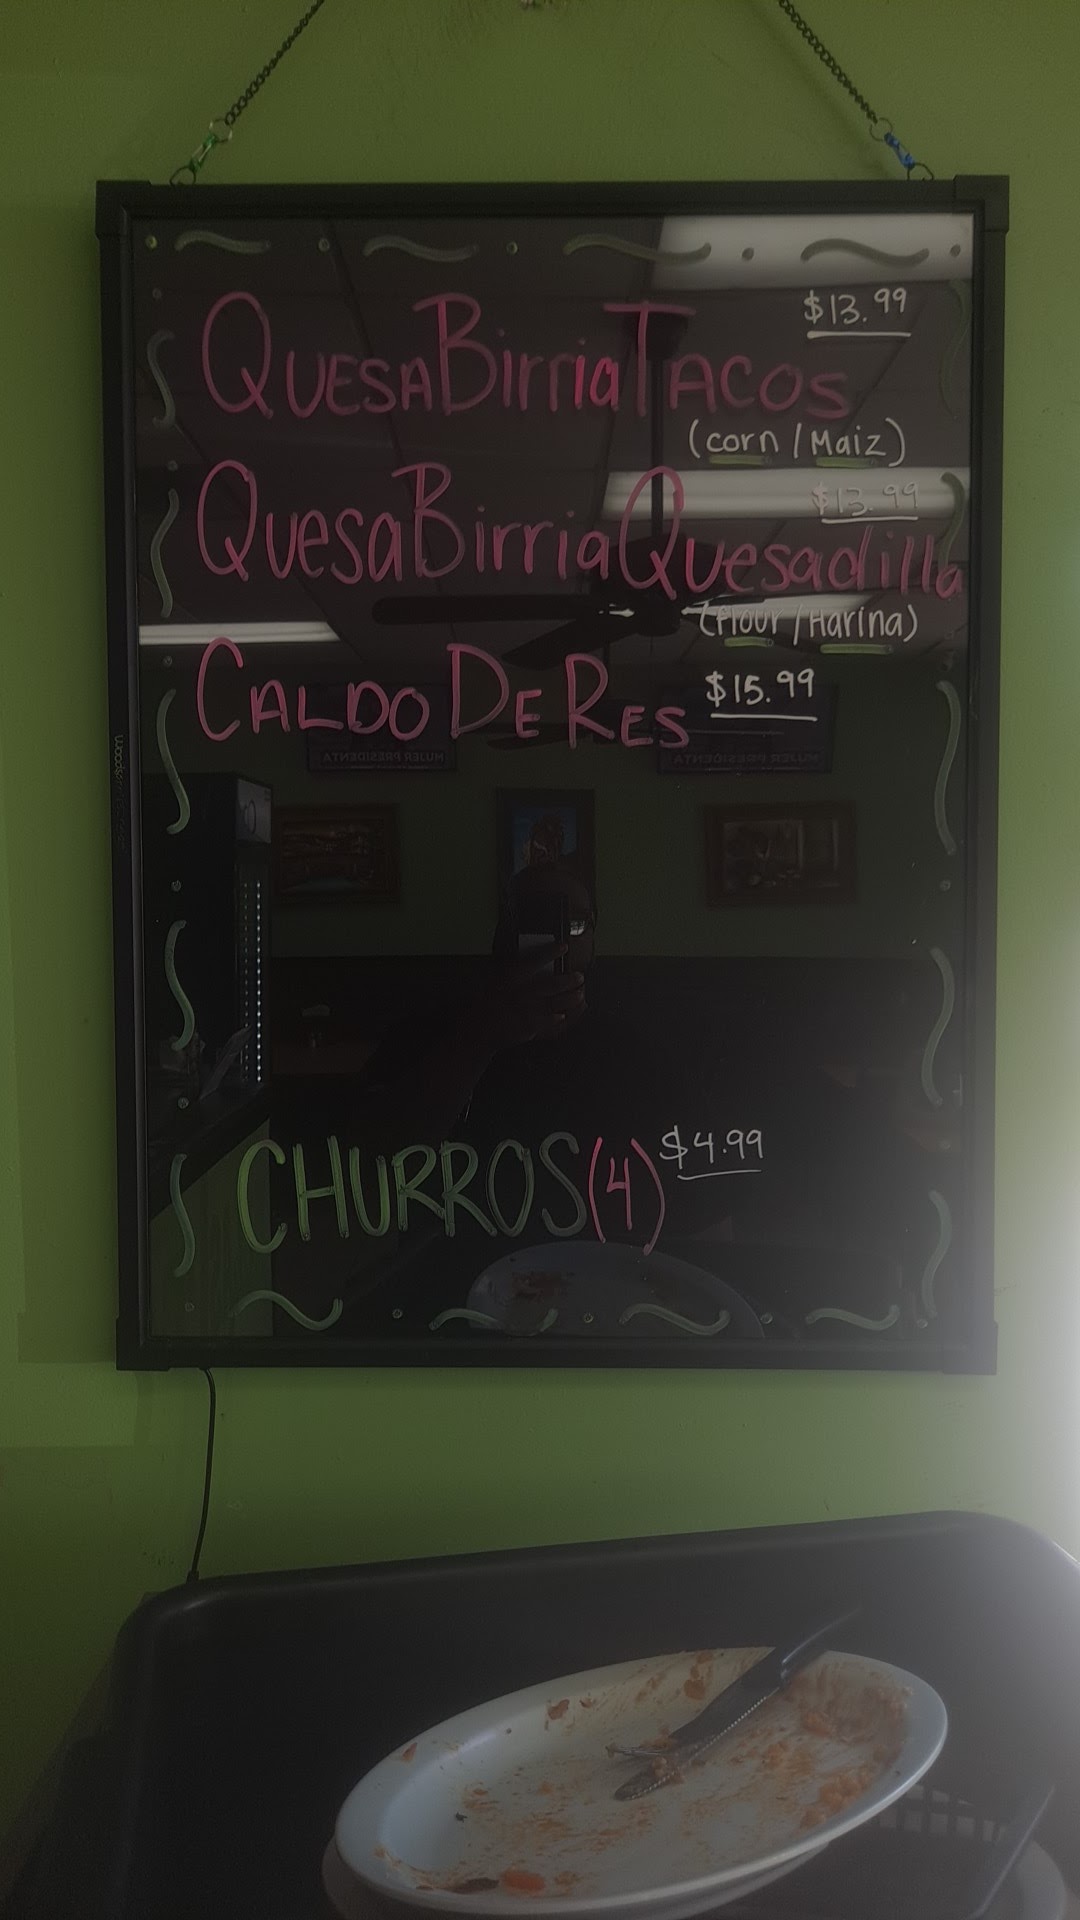 $13.99
QUESABirriaTACOS
(corn/Maiz)
$13.99
QuesaBirriaQuesadilla
(flour/Harina)
CALDO DE RES $15.99
MUJER PRESIDENTA
MUJER PRESIDENTA
CHURROS(4) $4.99